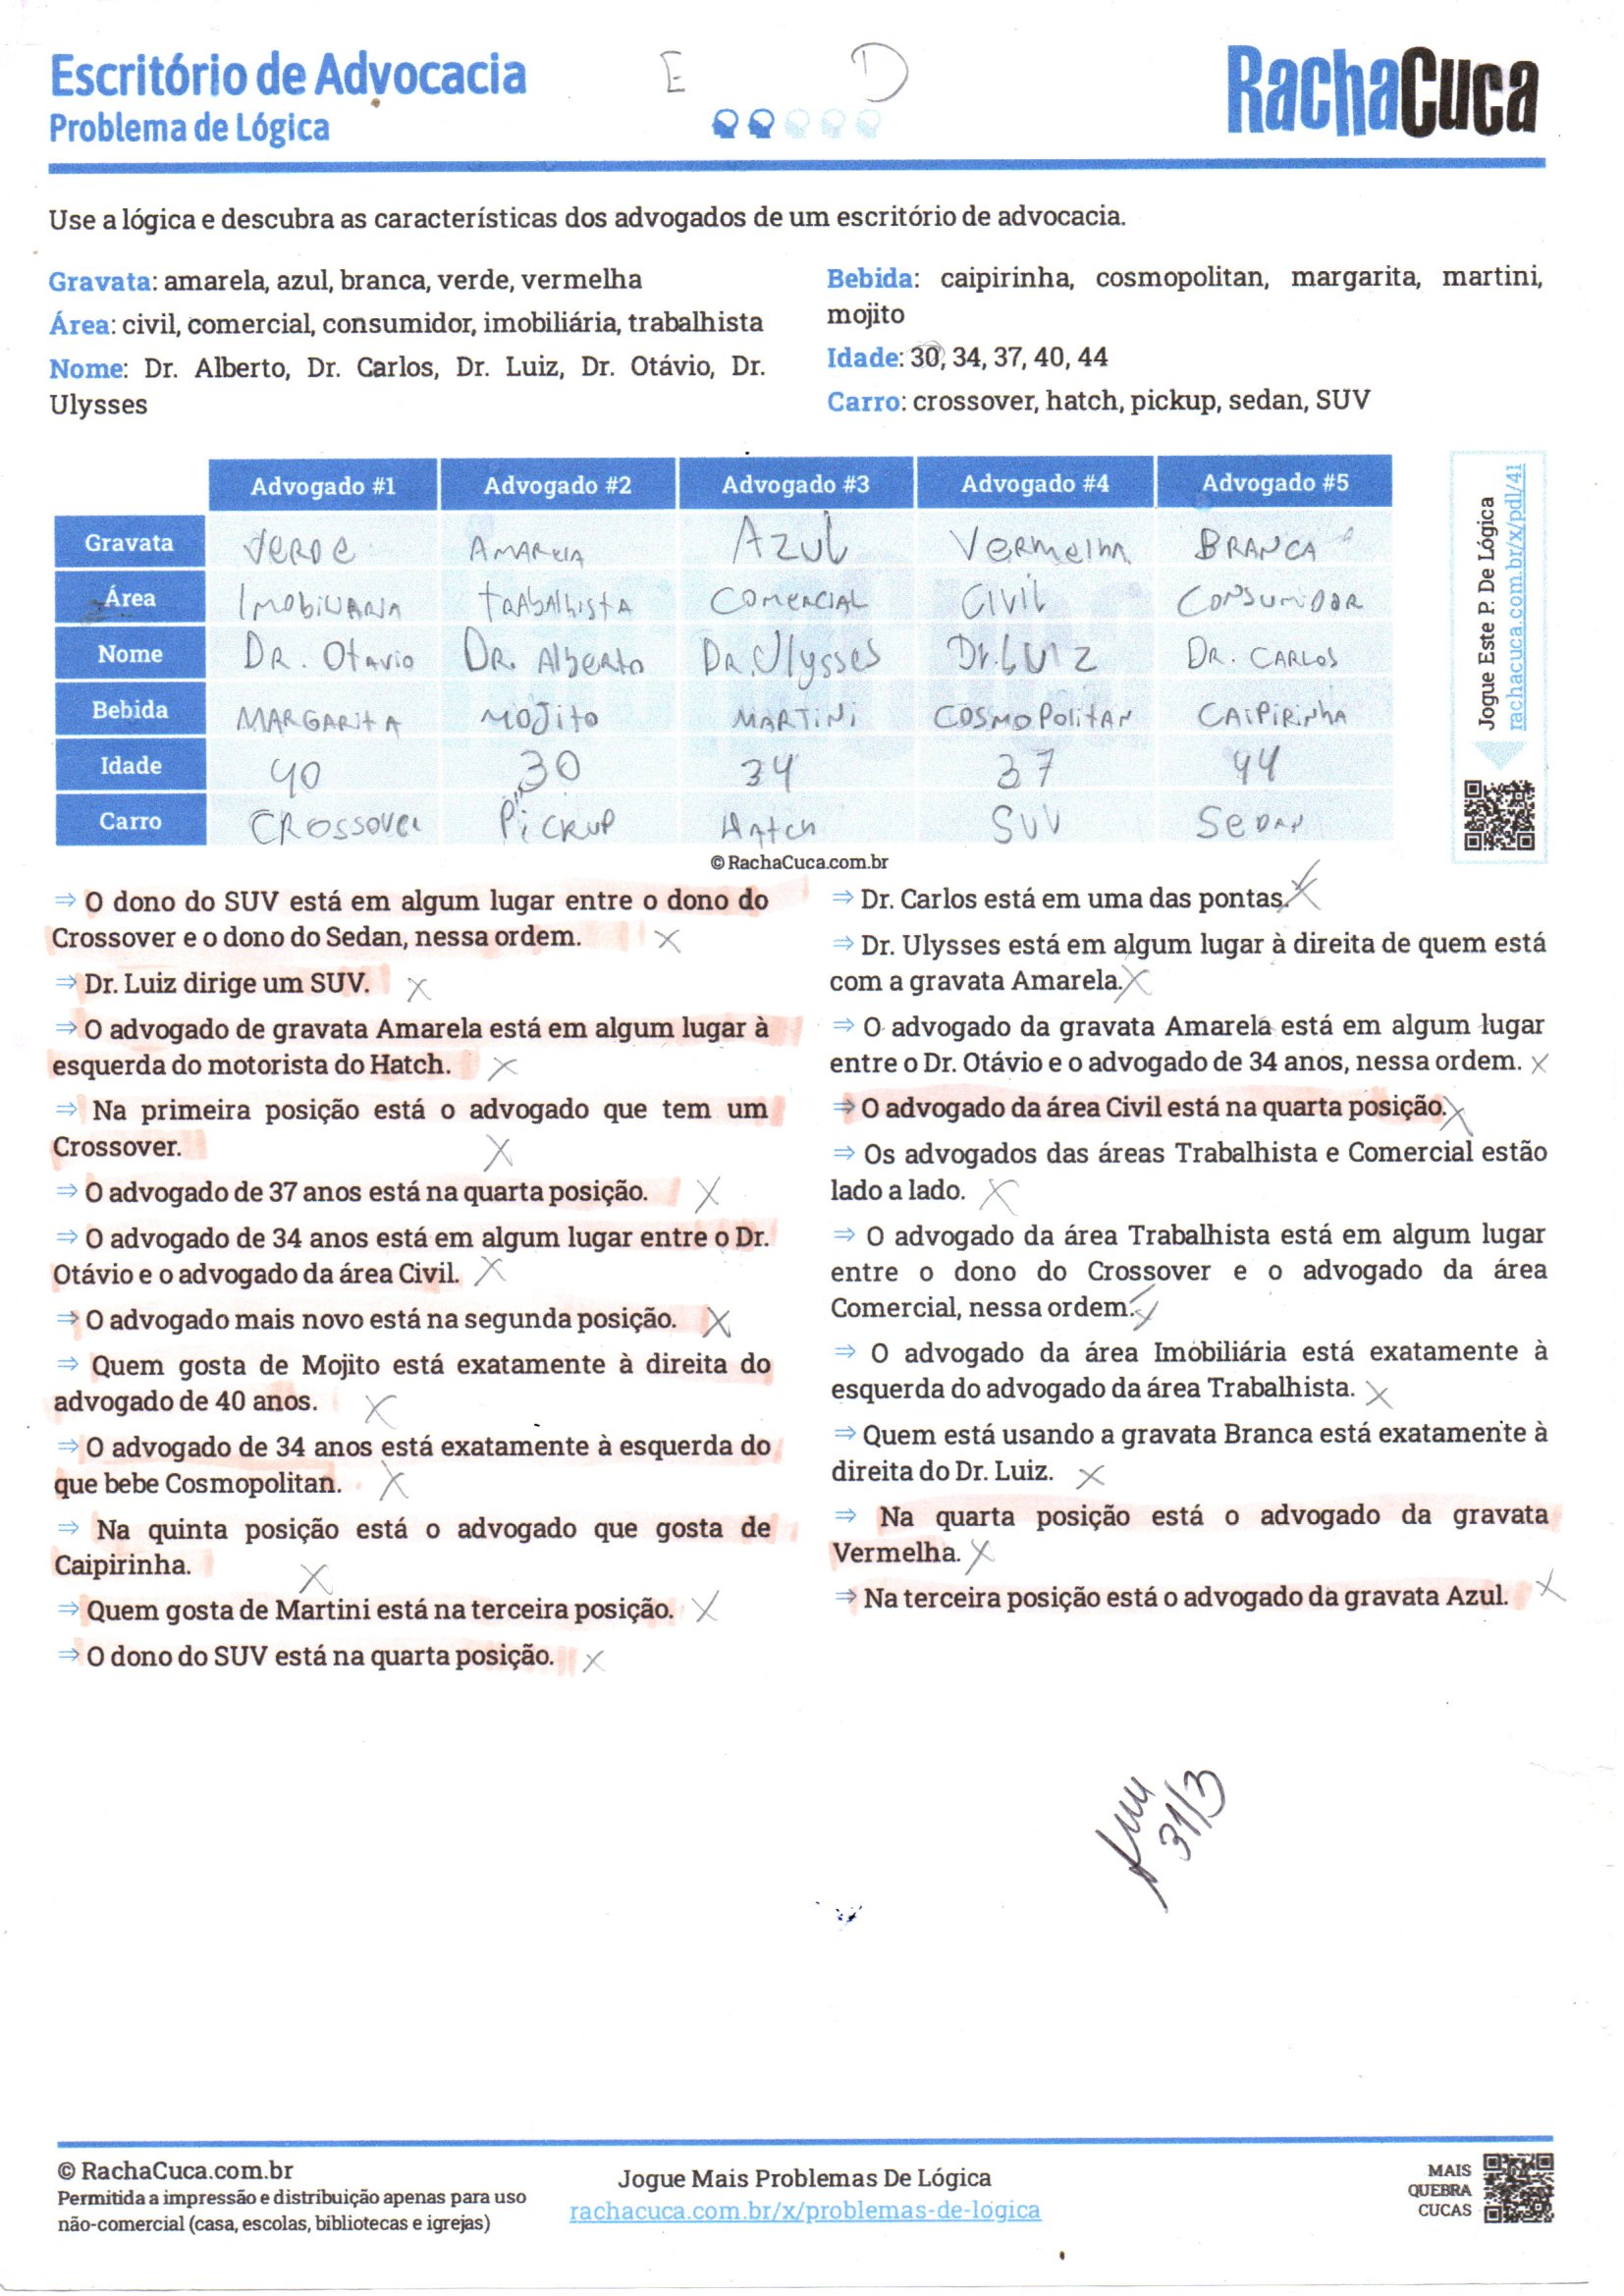 Escritório de Advocacia
E D
Problema de Lógica
RachaCuca
Use a lógica e descubra as características dos advogados de um escritório de advocacia.
Gravata: amarela, azul, branca, verde, vermelha
Área: civil, comercial, consumidor, imobiliária, trabalhista
Nome: Dr. Alberto, Dr. Carlos, Dr. Luiz, Dr. Otávio, Dr.
Ulysses
Bebida: caipirinha, cosmopolitan, margarita, martini,
mojito
Idade: 30, 34, 37, 40, 44
Carro: crossover, hatch, pickup, sedan, SUV
Advogado #1 Advogado #2 Advogado #3 Advogado #4 Advogado #5
Gravata VERDE AMARELA AZUL VERMELHA BRANCA
Área IMOBILIARIA TRABALHISTA COMERCIAL CIVIL CONSUMIDOR
Nome DR. OTAVIO DR. ALBERTO DR. Ulysses Dr. LUIZ DR. CARLOS
Bebida MARGARITA MOJITO MARTINI COSMOPOLITAN CAIPIRINHA
Idade 40 30 34 37 44
Carro CROSSOVER PICKUP HATCH SUV SEDAN
Jogue Este P. De Lógica
rachacuca.com.br/x/pdl/41
© RachaCuca.com.br
⇒ O dono do SUV está em algum lugar entre o dono do
Crossover e o dono do Sedan, nessa ordem. X
⇒ Dr. Luiz dirige um SUV. X
⇒ O advogado de gravata Amarela está em algum lugar à
esquerda do motorista do Hatch. X
⇒ Na primeira posição está o advogado que tem um
Crossover. X
⇒ O advogado de 37 anos está na quarta posição. X
⇒ O advogado de 34 anos está em algum lugar entre o Dr.
Otávio e o advogado da área Civil. X
⇒ O advogado mais novo está na segunda posição. X
⇒ Quem gosta de Mojito está exatamente à direita do
advogado de 40 anos. X
⇒ O advogado de 34 anos está exatamente à esquerda do
que bebe Cosmopolitan. X
⇒ Na quinta posição está o advogado que gosta de
Caipirinha. X
⇒ Quem gosta de Martini está na terceira posição. X
⇒ O dono do SUV está na quarta posição. X
⇒ Dr. Carlos está em uma das pontas. X
⇒ Dr. Ulysses está em algum lugar à direita de quem está
com a gravata Amarela. X
⇒ O advogado da gravata Amarela está em algum lugar
entre o Dr. Otávio e o advogado de 34 anos, nessa ordem. X
⇒ O advogado da área Civil está na quarta posição. X
⇒ Os advogados das áreas Trabalhista e Comercial estão
lado a lado. X
⇒ O advogado da área Trabalhista está em algum lugar
entre o dono do Crossover e o advogado da área
Comercial, nessa ordem. X
⇒ O advogado da área Imobiliária está exatamente à
esquerda do advogado da área Trabalhista. X
⇒ Quem está usando a gravata Branca está exatamente à
direita do Dr. Luiz. X
⇒ Na quarta posição está o advogado da gravata
Vermelha. X
⇒ Na terceira posição está o advogado da gravata Azul. X
31/3
© RachaCuca.com.br
Permitida a impressão e distribuição apenas para uso
não-comercial (casa, escolas, bibliotecas e igrejas)
Jogue Mais Problemas De Lógica
rachacuca.com.br/x/problemas-de-logica
MAIS
QUEBRA
CUCAS